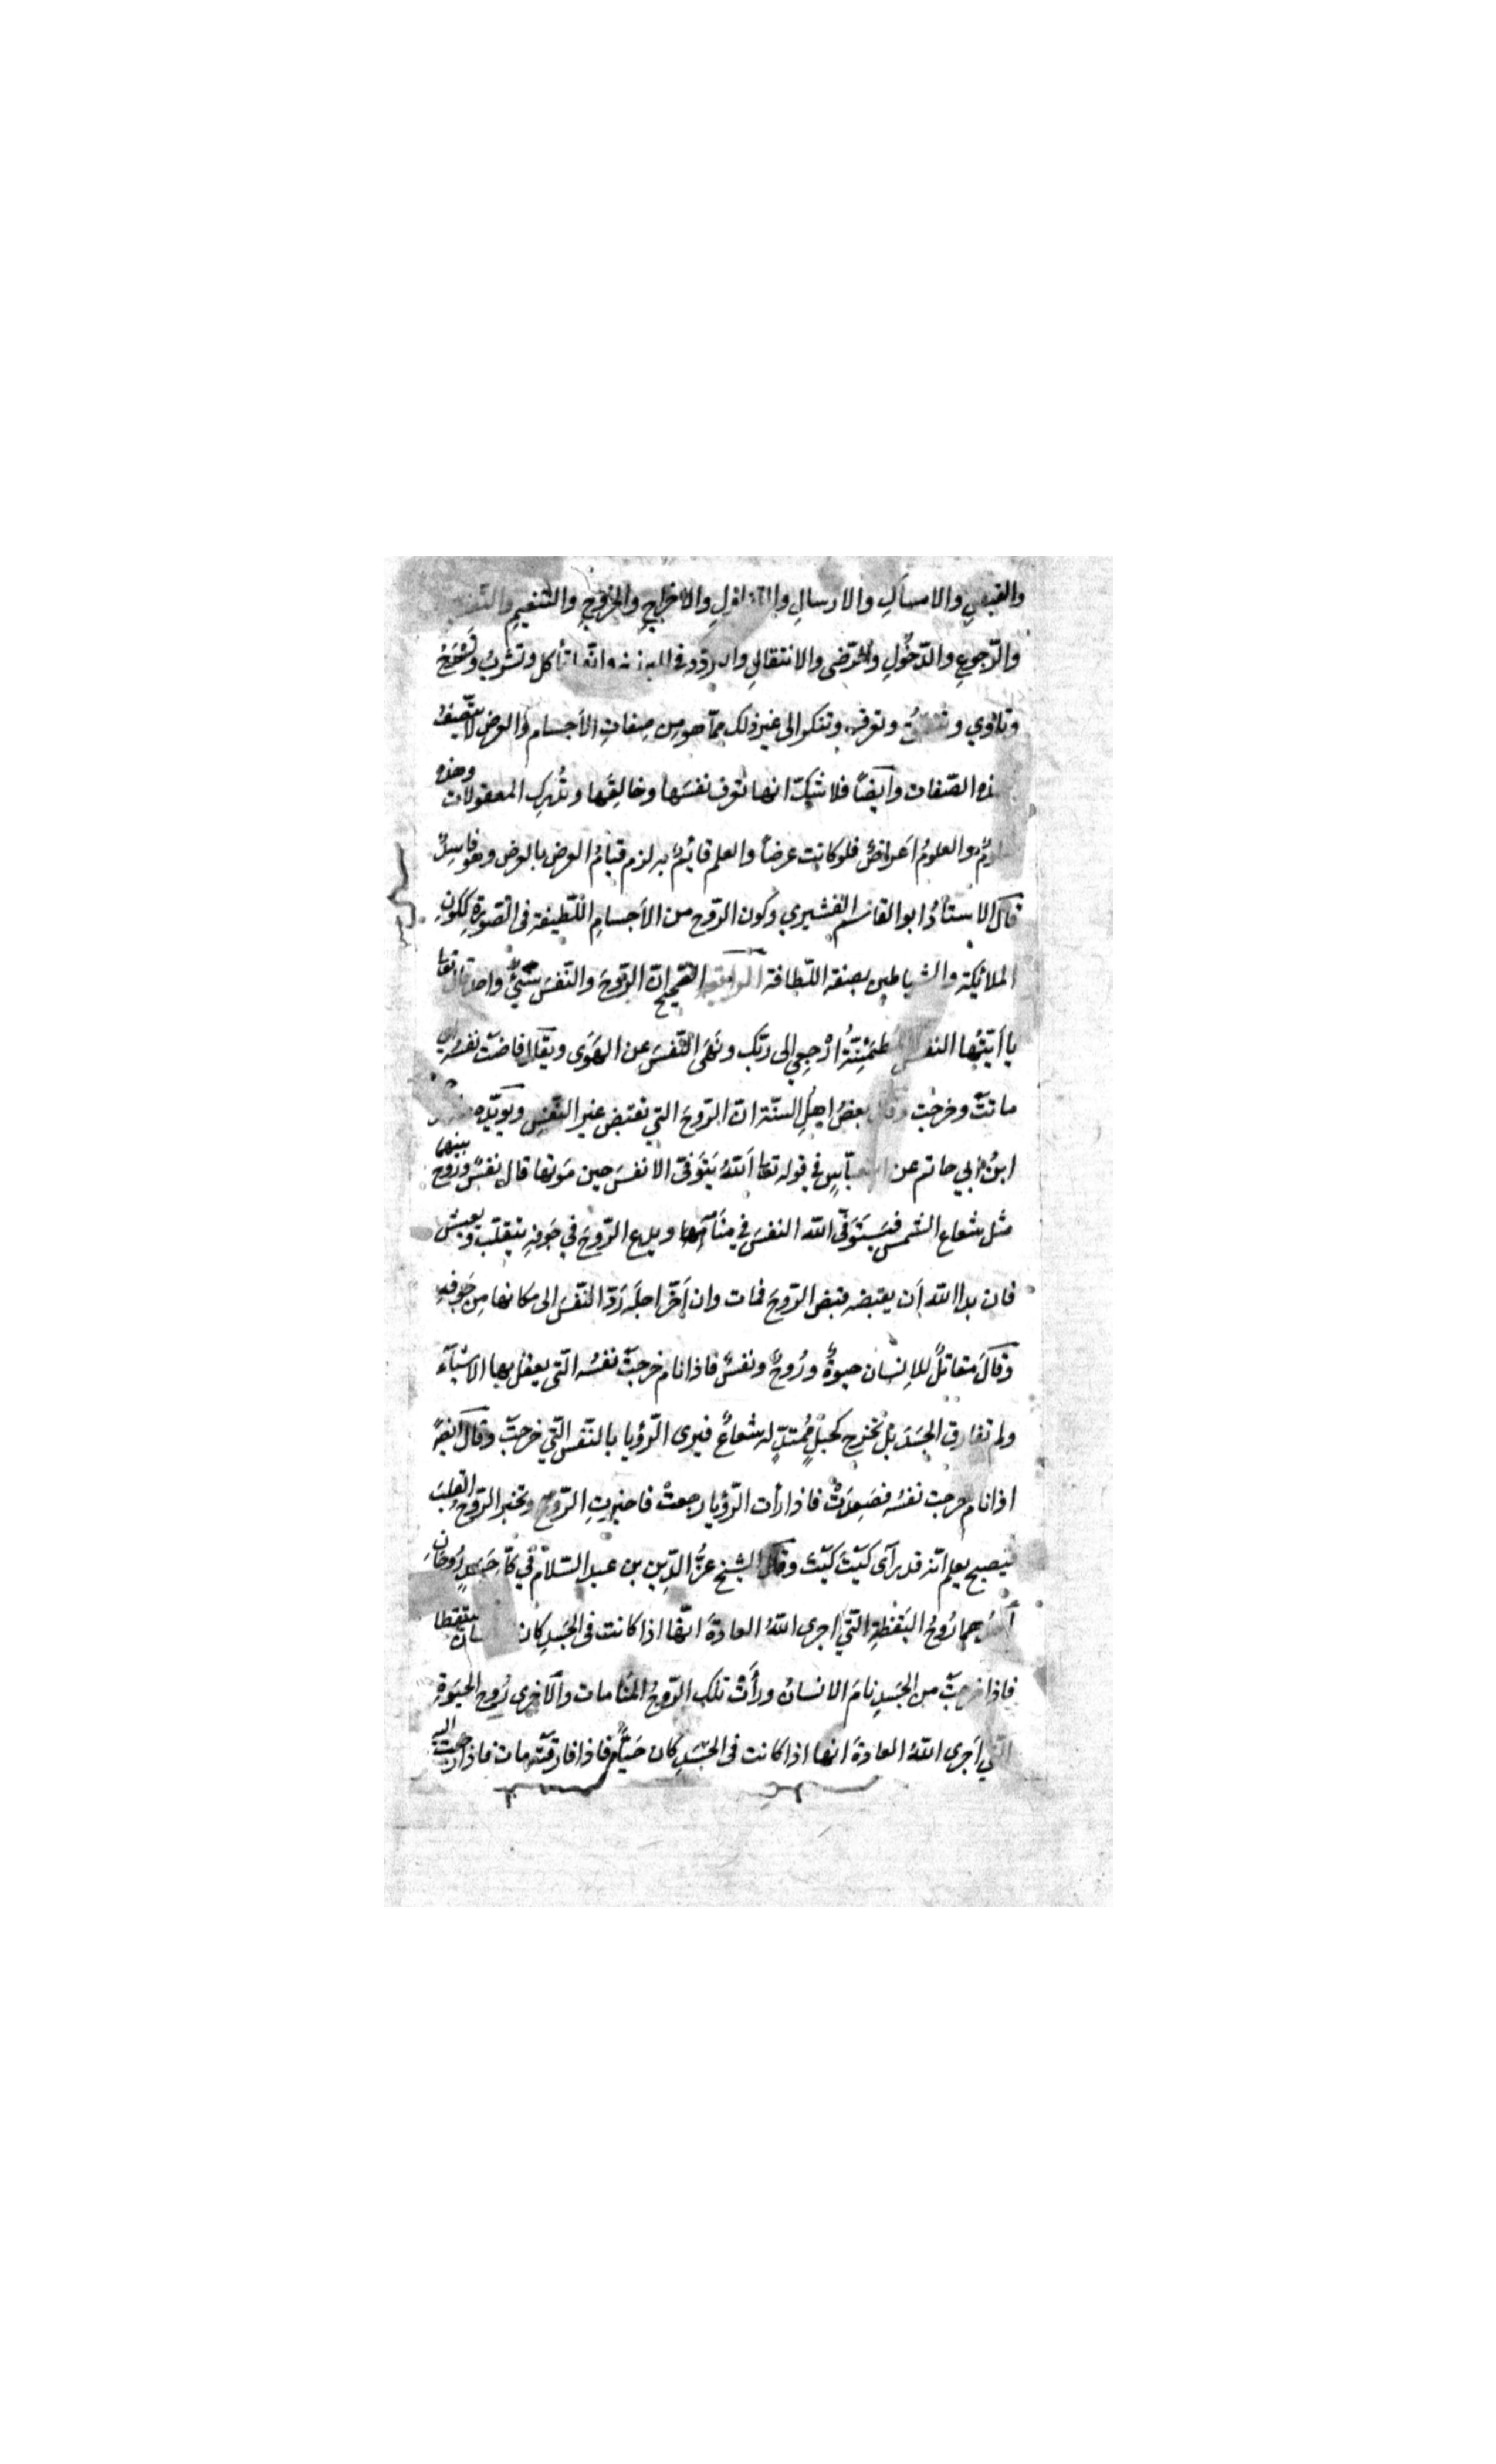 والقبض والامساكِ والارسالِ والتناولِ والاخراجِ والخروجِ والتنعيمِ والتعذيب
والرّجوعِ والدّخُولِ والرّضى والانتقالِ والتردّد في البرزخ وانّها تأكل وتشربُ وتَسْرَحُ
وتأوي وتنطقُ وتعرف وتنكر الى غير ذلك ممّا هو من صِفاتِ الأجسام والعرض لا يتّصِفُ
بهذه الصّفات وأيضًا فلا شكّ انها تعرف نفسَها وخالِقَها وتُدْرِك المعقولات وهذه
علومٌ والعلومُ اَعراضٌ فلو كانت عرضاً والعلم قائمٌ به لزم قيامُ العرض بالعرض وهو فاسِدٌ
قال الاستاذُ ابو القاسم القشيري وكون الرّوح من الأجسامِ اللّطيفة في الصّورة ككونِ
الملائكة والشياطين بصفة اللّطافة الصّحيح انّ الرّوحَ والنّفسَ شيءٌ واحد قال تعا
يا اَيّتُها النفس المُطْمَئِنّةُ ارْجِعِي الى ربّكِ ونَهَى النّفسَ عن الهَوَى ويقال فاضَتْ نفسُه اي
ماتتْ وخرجَتْ وقال بعضُ اهلِ السنّة انّ الرّوحَ التي تقبض غير النّفسِ ويؤيّده
ابنُ ابي حاتم عن ابن عبّاسٍ في قوله تعا اَللّهُ يَتَوَفّى الانفسَ حين مَوتها قال نفسٌ وروحٌ بينهما
مثل شعاع الشّمس فيَتَوَفّى اللّه النفسَ في منَامِها ويدع الرّوحَ في جَوفهِ يتقلّب ويعيش
فان بدا اللّه اَن يقبضه قبض الرّوحَ فمات وان اَخّر اجلَه رَدّ النّفسَ الى مكانها مِن جَوفهِ
وقالَ مقاتلٌ للاِنسان حيوةٌ ورُوحٌ ونفسٌ فاذا نام خرجَتْ نفسُه الّتي يعقل بها الاشيآء
ولم تفارق الجسَدَ بل تخرج كحَبْلٍ مُمتدٍّ له شعاعٌ فيرى الرّؤيا بالنّفس الّتي خرجتْ وقال ايضًا
اذا نام خرجت نفسُه فصَعِدَتْ فاذا رأت الرّؤيا رجعتْ فاخبرتِ الرّوحَ وتخبر الرّوحُ القلبَ
فيصبح يعلم انّه قد رآى كَيْتَ كَيْتَ وقال الشّيخ عزُّ الدّين بن عبد السّلام في كلّ جَسَدٍ رُوحَانِ
اَحدُهما رُوحُ اليَقظةِ الّتي اجرى اللّهُ العادةَ انّها اذا كانت في الجسَدِ كان الانسان متيقظا
فاذا خرجتْ من الجَسَدِ نامَ الانسانُ ورأَتْ تلك الرّوحُ المَنامات والاَخرى رُوح الحَيَوةِ
الّتي اَجرى اللّهُ العادةَ انها اذا كانت في الجَسَدِ كان حَيًّا فاذا فارقتْه مات فاذا رجعت اليه